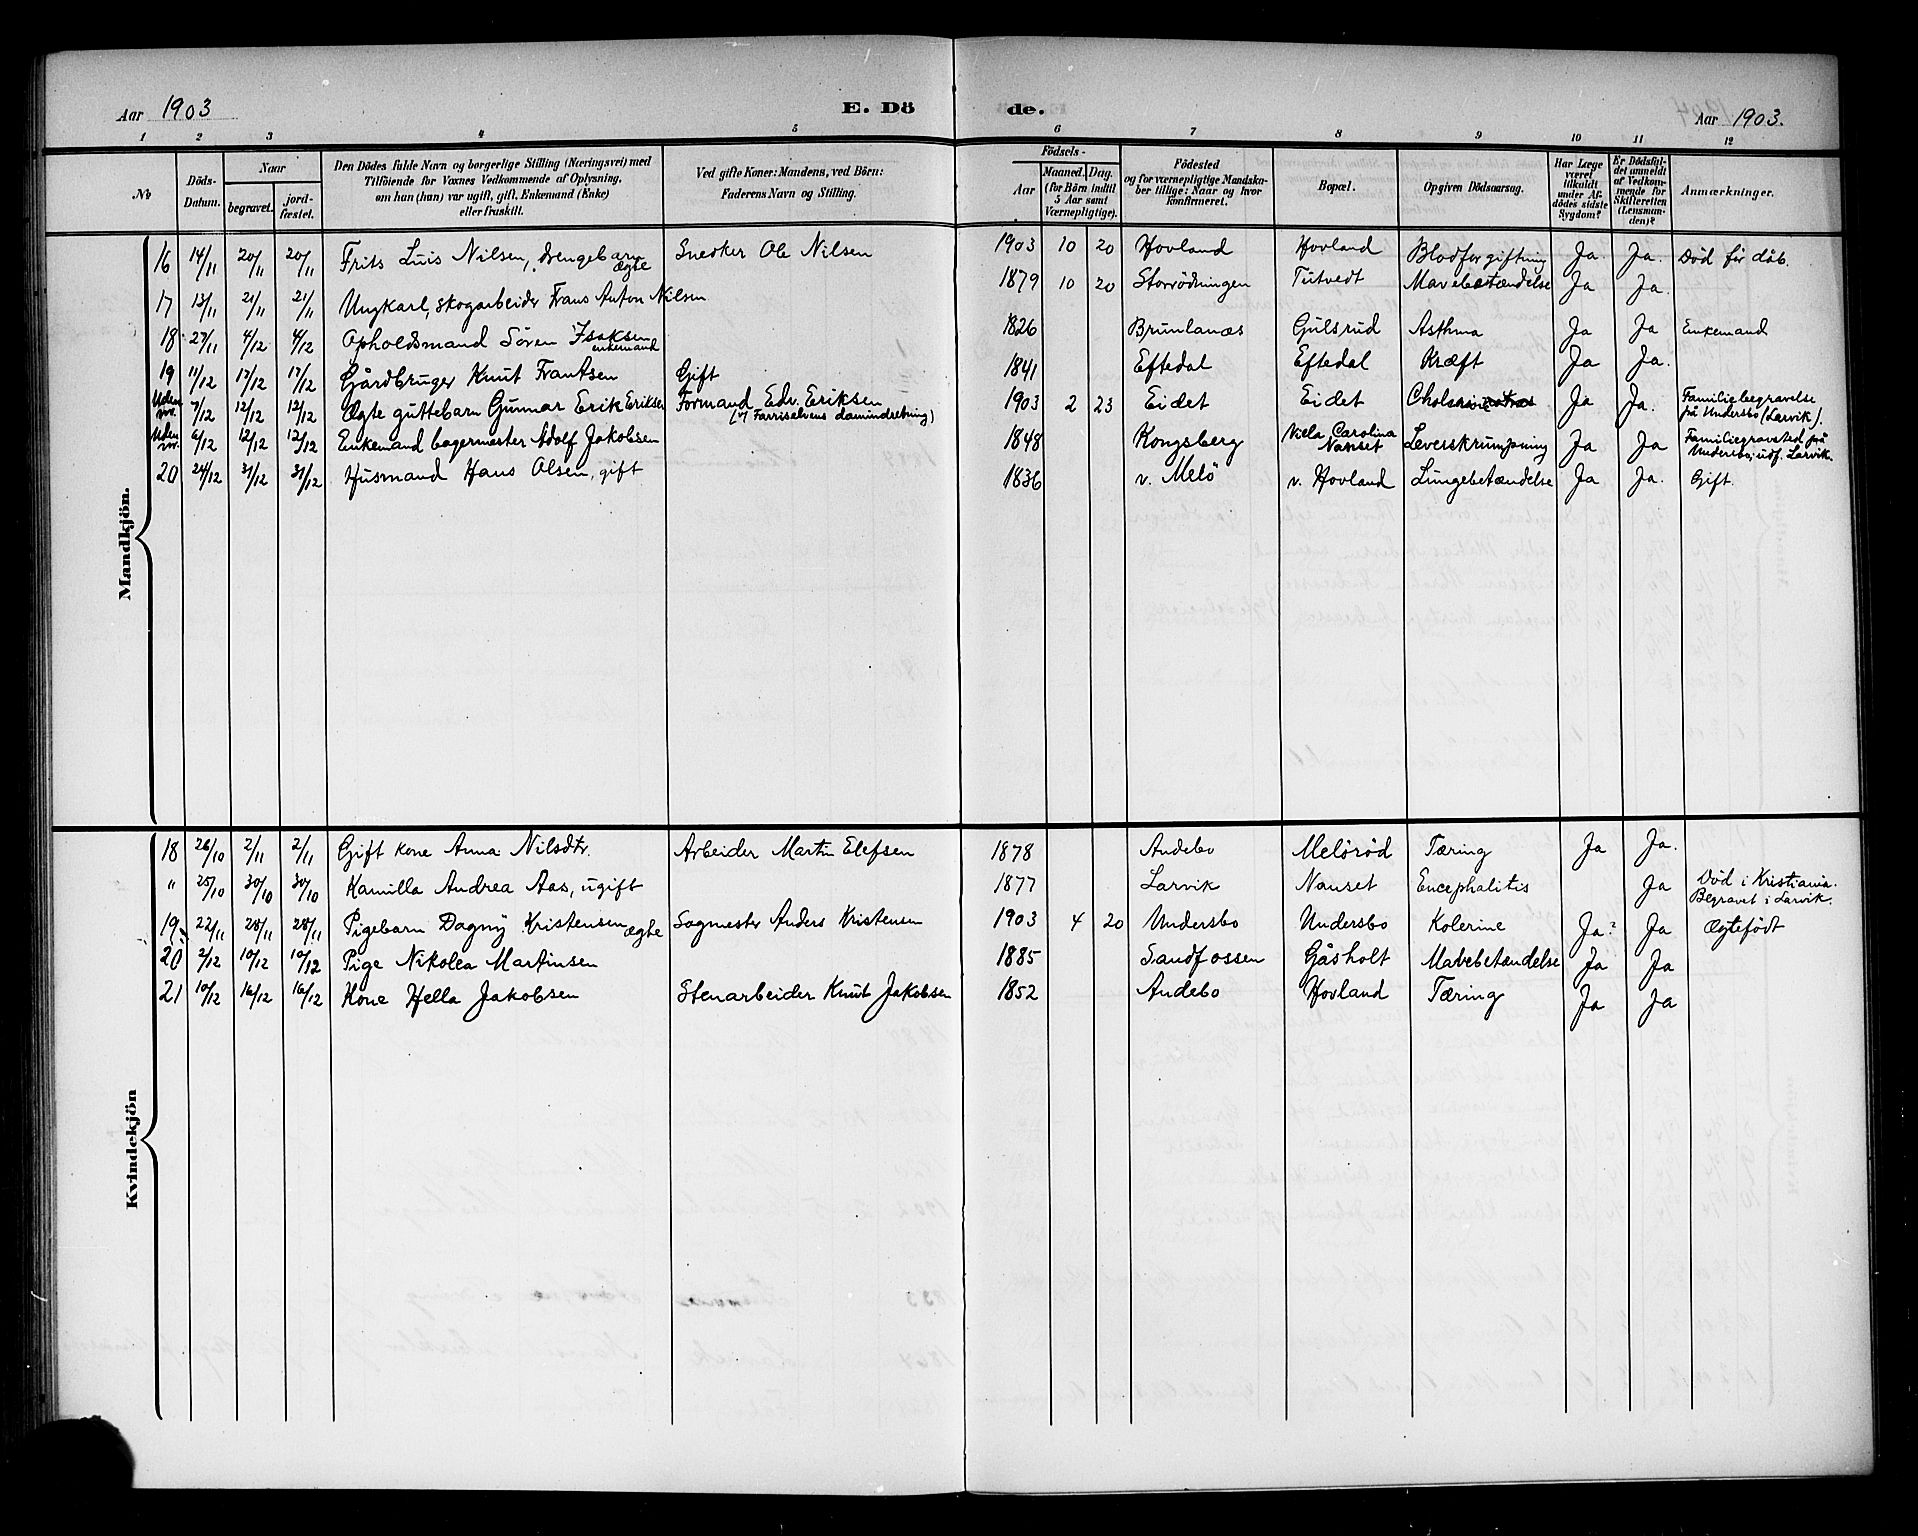 Aar 1903 E. Dö de. Aar 1903.
1 2 3 4 5 6 7 8 9 10 11 12
No
Döds-Datum.
Naar
begravet.
jord-fæstet.
Den Dödes fulde Navn og borgerlige Stilling (Næringsvei) med
Tilföiende for Voxnes Vedkommende af Oplysning,
om han (hun) var ugift, gift, Enkemand (Enke)
eller fraskilt.
Ved gifte Koner: Mandens, ved Börn:
Faderens Navn og Stilling.
Födsels-
Aar
Maaned. Dag.
(for Börn indtil
5 Aar samt
Værnepligtige).
Födested
og for værnepligtige Mandska-
ber tillige: Naar og hvor
Konfirmeret.
Bopæl.
Opgiven Dödsaarsag.
Har Læge
været
tilkaldt
under Af-
dödes sidste
Sygdom?
Er Dödsfal-
det anmeldt
af Vedkom-
mende for
Skifteretten
(Lensman-
den)?
Anmærkninger.
Mandkjön.
16 14/11 20/11 20/11 Frits Luis Nilsen, drengebarn ægte Snedker Ole Nilsen 1903 10 20 Hovland Hovland Blodforgiftning Ja Ja. Död för dåb.
17 13/11 21/11 21/11 Ungkarl, skogarbeider Frans Anton Nilsen 1879 10 20 Storrödningen Tutvedt Mavebetændelse Ja Ja.
18 27/11 4/12 4/12 Opholdsmand Sören Isaksen enkemand 1826 Brunlanæs Gulsrud Asthma Ja Ja Enkemand
19 11/12 17/12 17/12 Gårdbruger Knut Frantsen Gift 1841 Eftedal Eftedal Kræft Ja Ja.
Uden nr. 7/12 12/12 12/12 Ægte guttebarn Gunnar Erik Eriksen Formand Edv. Eriksen (v/ Farriselvens damindretning) 1903 2 23 Eidet Eidet Ja Ja. Familiebegravelse på Undersbo (Larvik).
Uden nr. 6/12 12/12 12/12 Enkemand bagermester Adolf Jakobsen 1848 Kongsberg Carolina Nanset Leverskrumpning Ja Ja Familiegravsted på Undersbo, udf. Larvik.
20 24/12 31/12 31/12 Husmand Hans Olsen, gift 1836 v. Melö v. Hovland Lungebetændelse Ja Ja. Gift.
Kvindekjön
18 26/10 2/11 2/11 Gift kone Anna Nilsdtr. Arbeider Martin Elefsen 1878 Andebo Melöröd Tæring Ja Ja.
" 25/10 30/10 30/10 Kamilla Andrea Aas, ugift 1877 Larvik Nanset Encephalitis Ja Död i Kristiania. Begravet i Larvik.
19 22/11 28/11 28/11 Pigebarn Dagny Kristensen ægte Sagmester Anders Kristensen 1903 4 20 Undersbo Undersbo Kolerine Ja? Ja Ægtefödt
20 2/12 10/12 10/12 Pige Nikolea Martinsen 1885 Sandfossen Gåsholt Mavebetændelse Ja Ja
21 10/12 16/12 16/12 Kone Hella Jakobsen Stenarbeider Knut Jakobsen 1852 Andebo Hovland Tæring Ja Ja